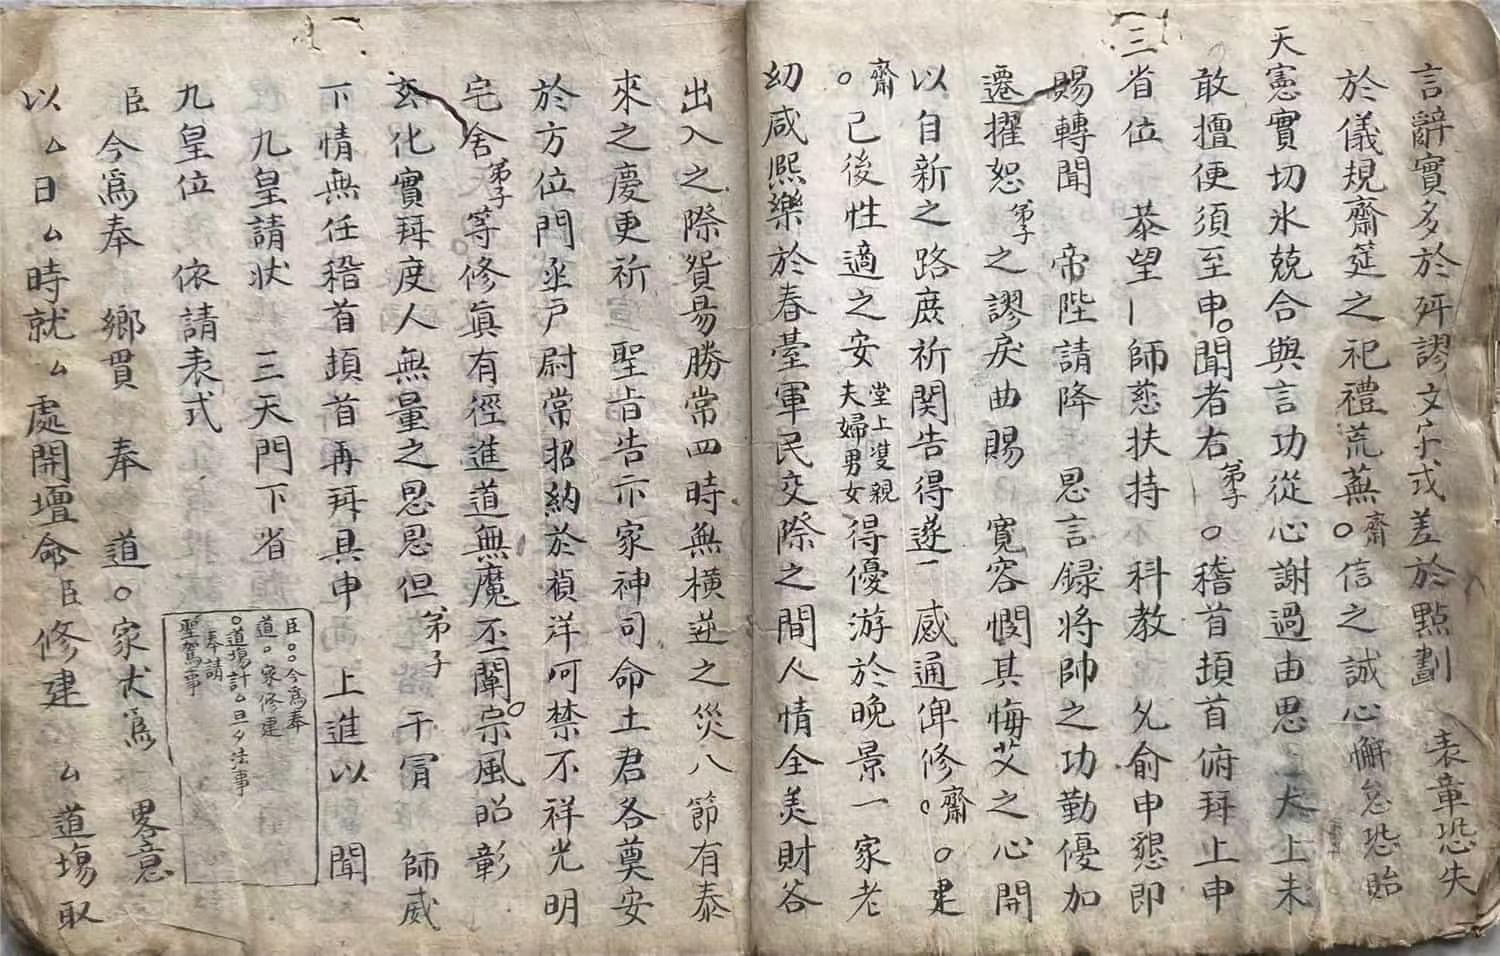 言辭實多於歼謬文字或差於點劃　表章恐失
於儀規齋筵之祀禮荒蕪○齋信之誠心懈怠恐貽
天憲實切氷兢合與言功從心謝過由思　大上未
敢擅便須至申○聞者右弟子○稽首頓首俯拜上申
三省位　恭望　師慈扶持　科教　允俞申懇即
賜轉聞　帝陛請降　恩言録將帥之功勤優加
遷擢恕弟子之謬戾曲賜　寛容憫其悔艾之心開
以自新之路庶祈関告得遂　感通俾修齋○　○建
齋○已後性適之安堂上双親夫婦男女得優游於晚景一家老
幼咸熙樂於春臺軍民交際之間人情全美財谷
出入之際貿易勝常四時無橫逆之災八節有泰
來之慶更祈　聖旨告示家神司命土君各奠安
於方位門丞戶尉常招納於禎洋呵禁不祥光明
宅舍弟子等修真有徑進道無魔丕闡○宗風昭彰
玄化實拜度人無量之恩恩但弟子干冐　師威
下情無任稽首頓首再拜具申　上進以聞
九皇請狀　三天門下省
九皇位　依請表式
臣○○今爲奉
道○家修建
○道場計厶旦夕法事
奉請
聖駕事
臣今爲奉　鄉貫　奉　道○家犬爲　畧意
以厶日厶時就厶處開壇命臣修建　厶道塲取